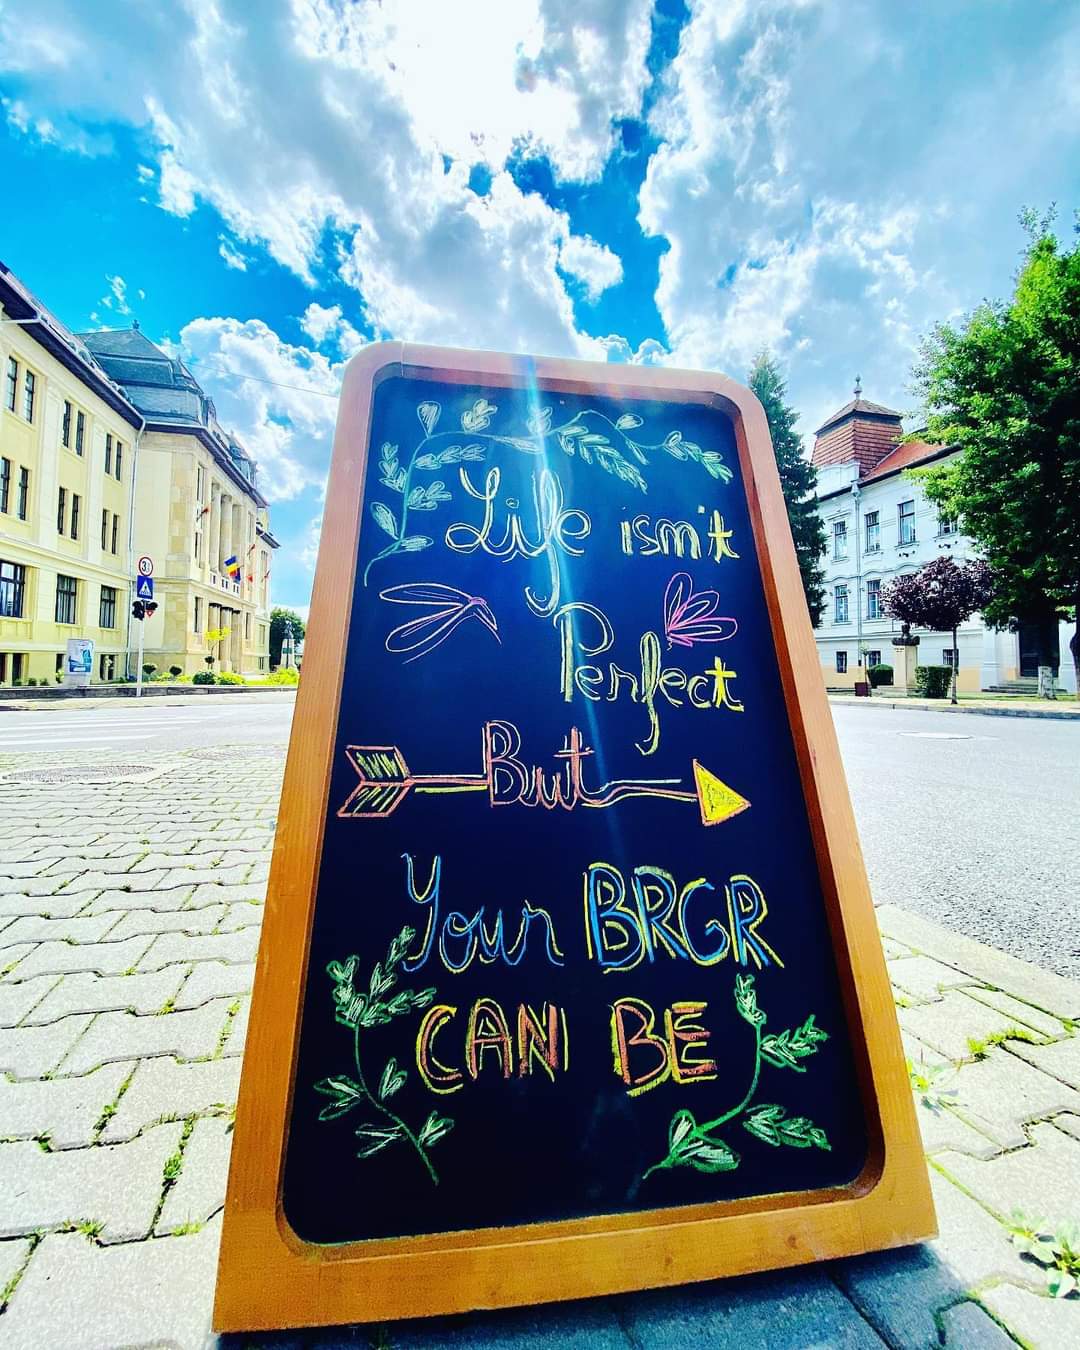 Life isn't
Perfect
But
Your BRGR
CAN BE